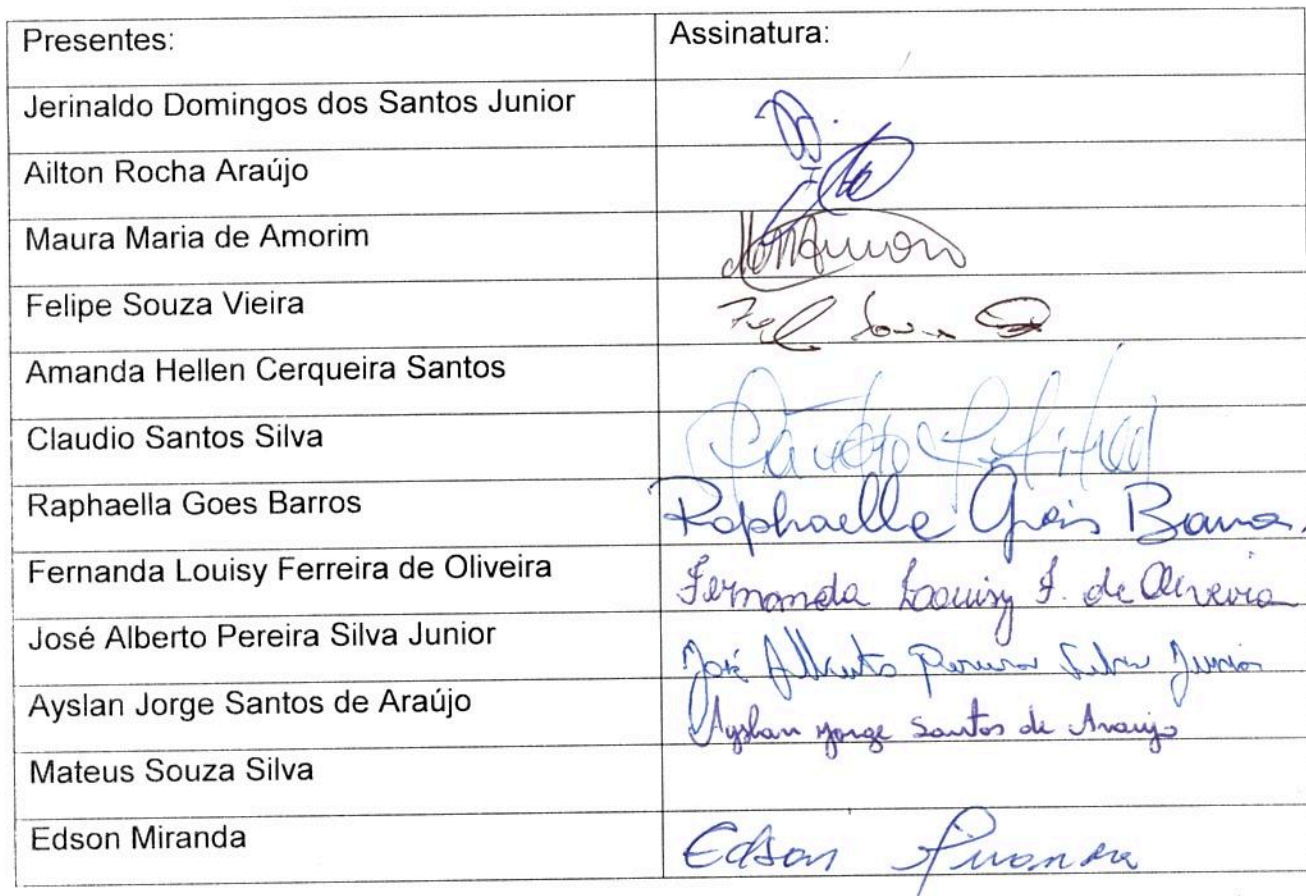 Presentes: Assinatura:
Jerinaldo Domingos dos Santos Junior
Ailton Rocha Araújo
Maura Maria de Amorim
Felipe Souza Vieira
Amanda Hellen Cerqueira Santos
Claudio Santos Silva
Raphaella Goes Barros Raphaella Barros
Fernanda Louisy Ferreira de Oliveira Fernanda Louisy F. de Oliveira
José Alberto Pereira Silva Junior José Alberto Pereira Silva Junior
Ayslan Jorge Santos de Araújo Ayslan Jorge Santos de Araujo
Mateus Souza Silva
Edson Miranda Edson Miranda